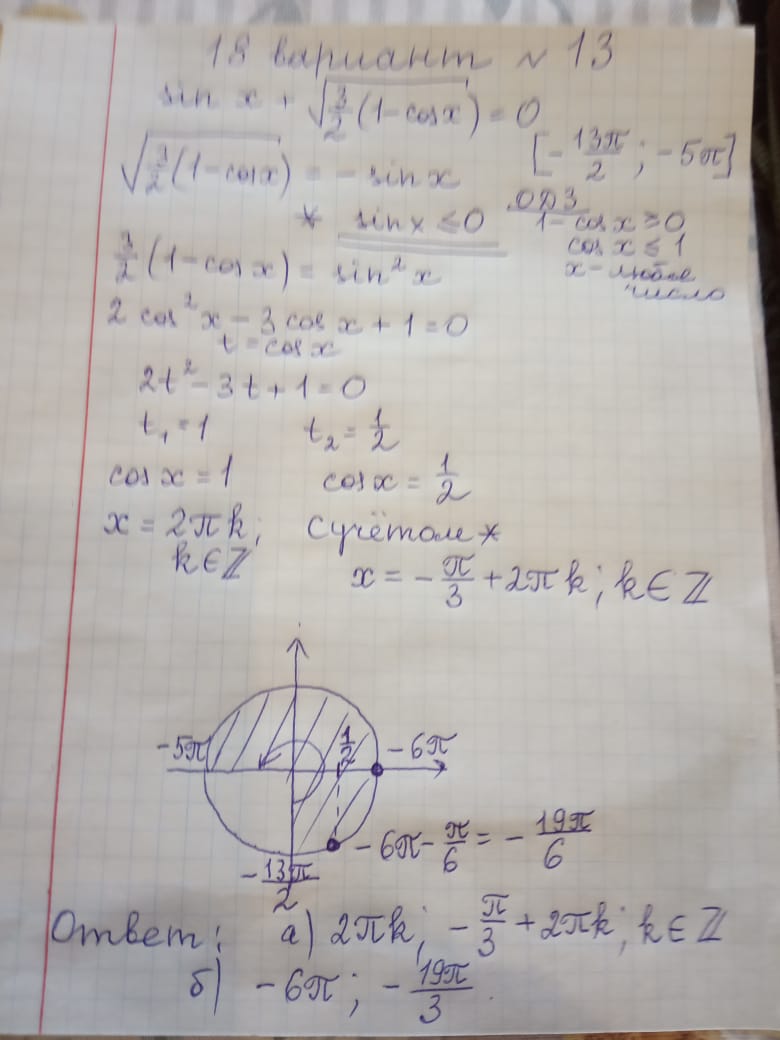 18 вариант № 13
sin x + √(3/2 (1-cosx)) = 0
[-13π/2 ; -5π]
√(3/2 (1-cosx)) = - sin x
* sin x ≤ 0
ОДЗ
1-cosx ≥ 0
cosx ≤ 1
x - любое
число
3/2 (1-cosx) = sin² x
2 cos² x - 3 cos x + 1 = 0
t = cosx
2t² - 3t + 1 = 0
t₁ = 1 t₂ = 1/2
cosx = 1 cosx = 1/2
x = 2πk; С учётом *
k∈ℤ
x = - π/3 + 2πk; k∈ℤ
-5π 1/2 -6π
-6π - π/6 = - 19π/6
-13π/2
Ответ: а) 2πk; - π/3 + 2πk; k∈ℤ
б) -6π; - 19π/3.